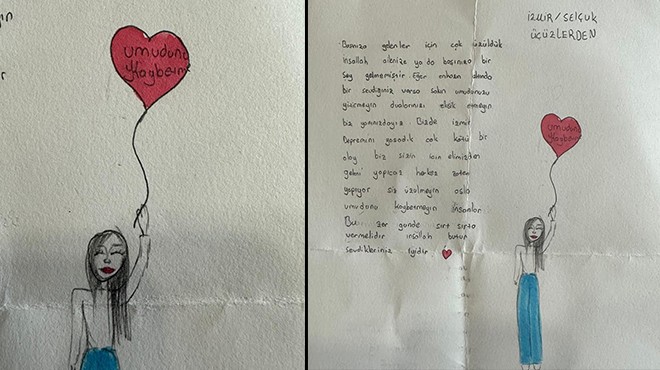 umudunu
Kaybetme
İZMİR/SELÇUK
ÜÇÜZLERDEN
Başınıza gelenler için çok üzüldük
inşallah ailenize ya da başınıza bir
şey gelmemiştir. Eğer enkazın altında
bir sevdiğiniz varsa sakın umudunuzu
yitirmeyin dualarınızı eksik etmeyin
biz yanınızdayız. Bizde izmir
Depremini yaşadık çok kötü bir
olay biz sizin için elimizden
geleni yapıcaz herkes zaten
yapıyor siz üzülmeyin asla
umudunu kaybetmeyin insanlar
Bu zor günde sırt sırta
vermelidir inşallah bütün
sevdikleriniz iyidir
umudunu
Kaybetme